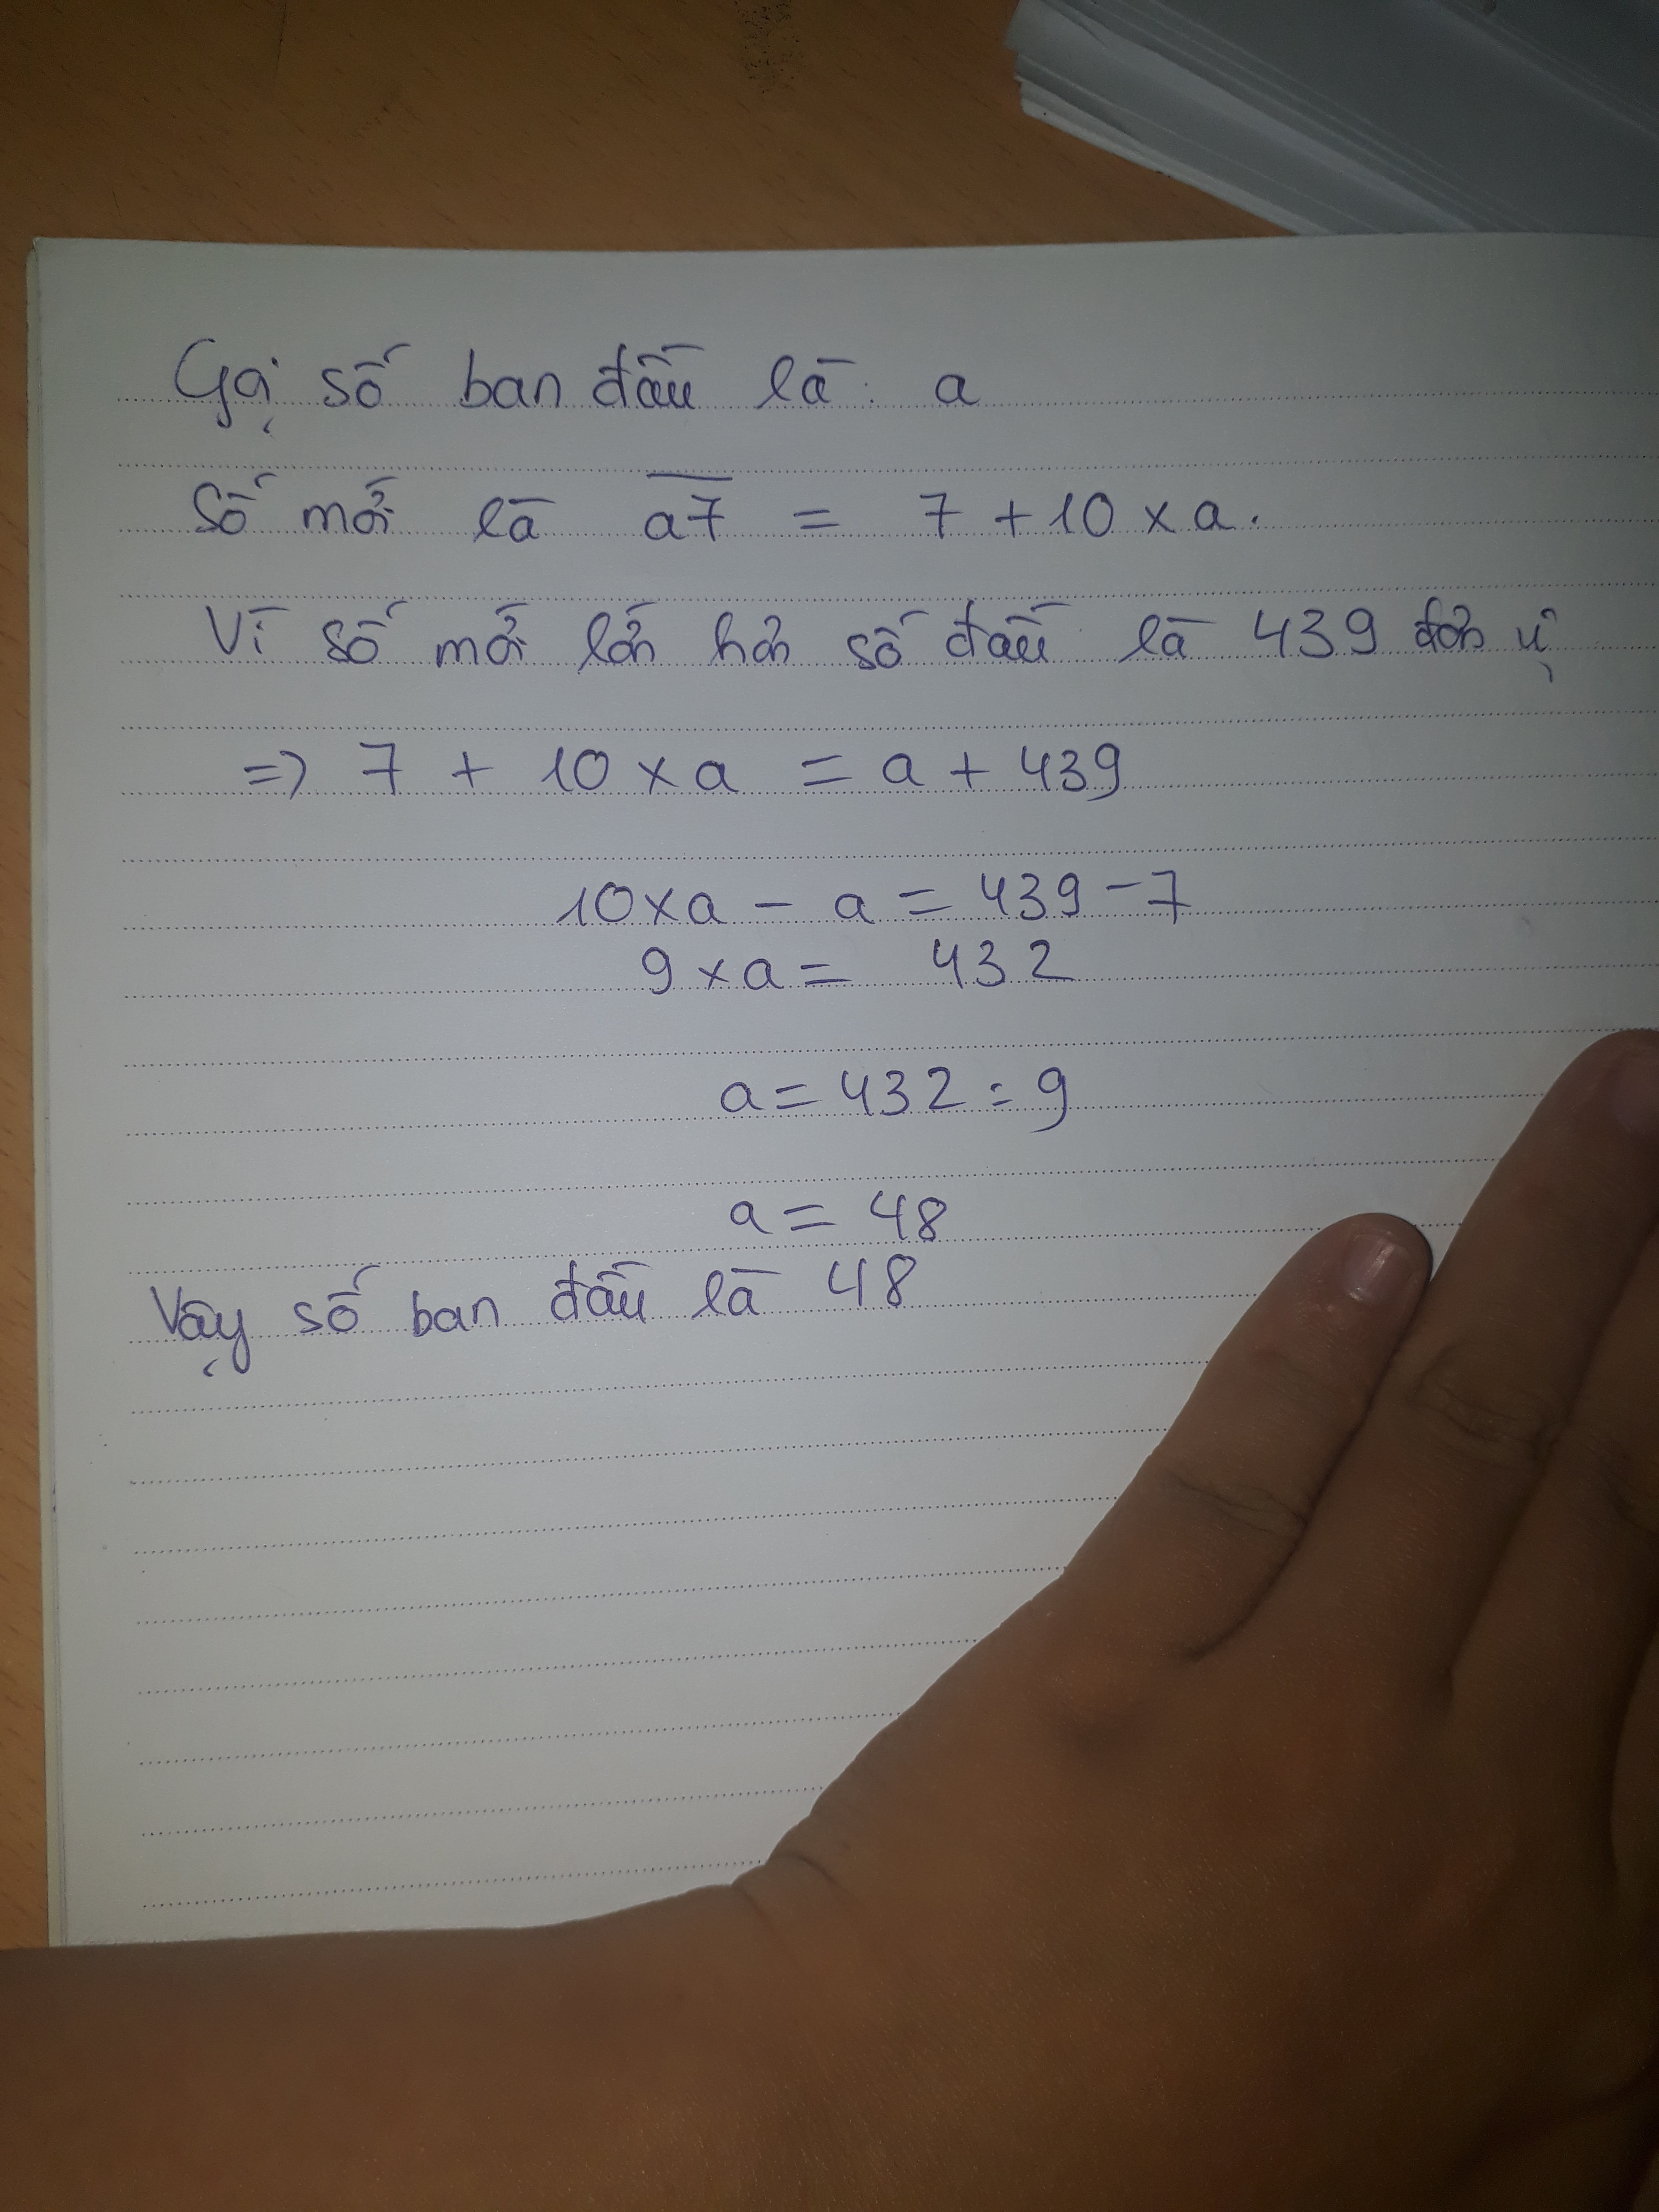 Gọi số ban đầu là: a
Số mới là a7̅ = 7 + 10 x a.
Vì số mới lớn hơn số đầu là 439 đơn vị
=> 7 + 10 x a = a + 439
10 x a - a = 439 - 7
9 x a = 432
a = 432 : 9
a = 48
Vậy số ban đầu là 48